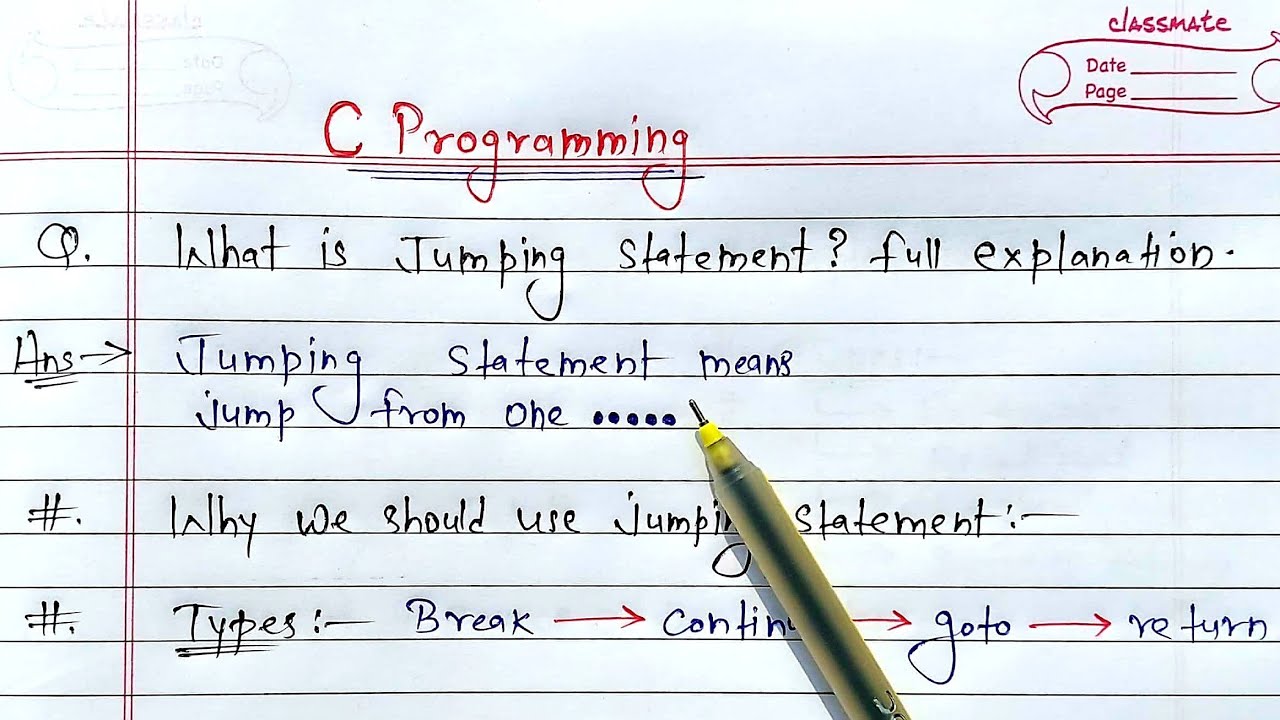 classmate
Date
Page
C Programming
Q. What is Jumping statement? full explanation.
Ans → Jumping statement means
jump from one •••••
#. Why we should use jumping statement:—
#. Types:— Break → contin → goto → return